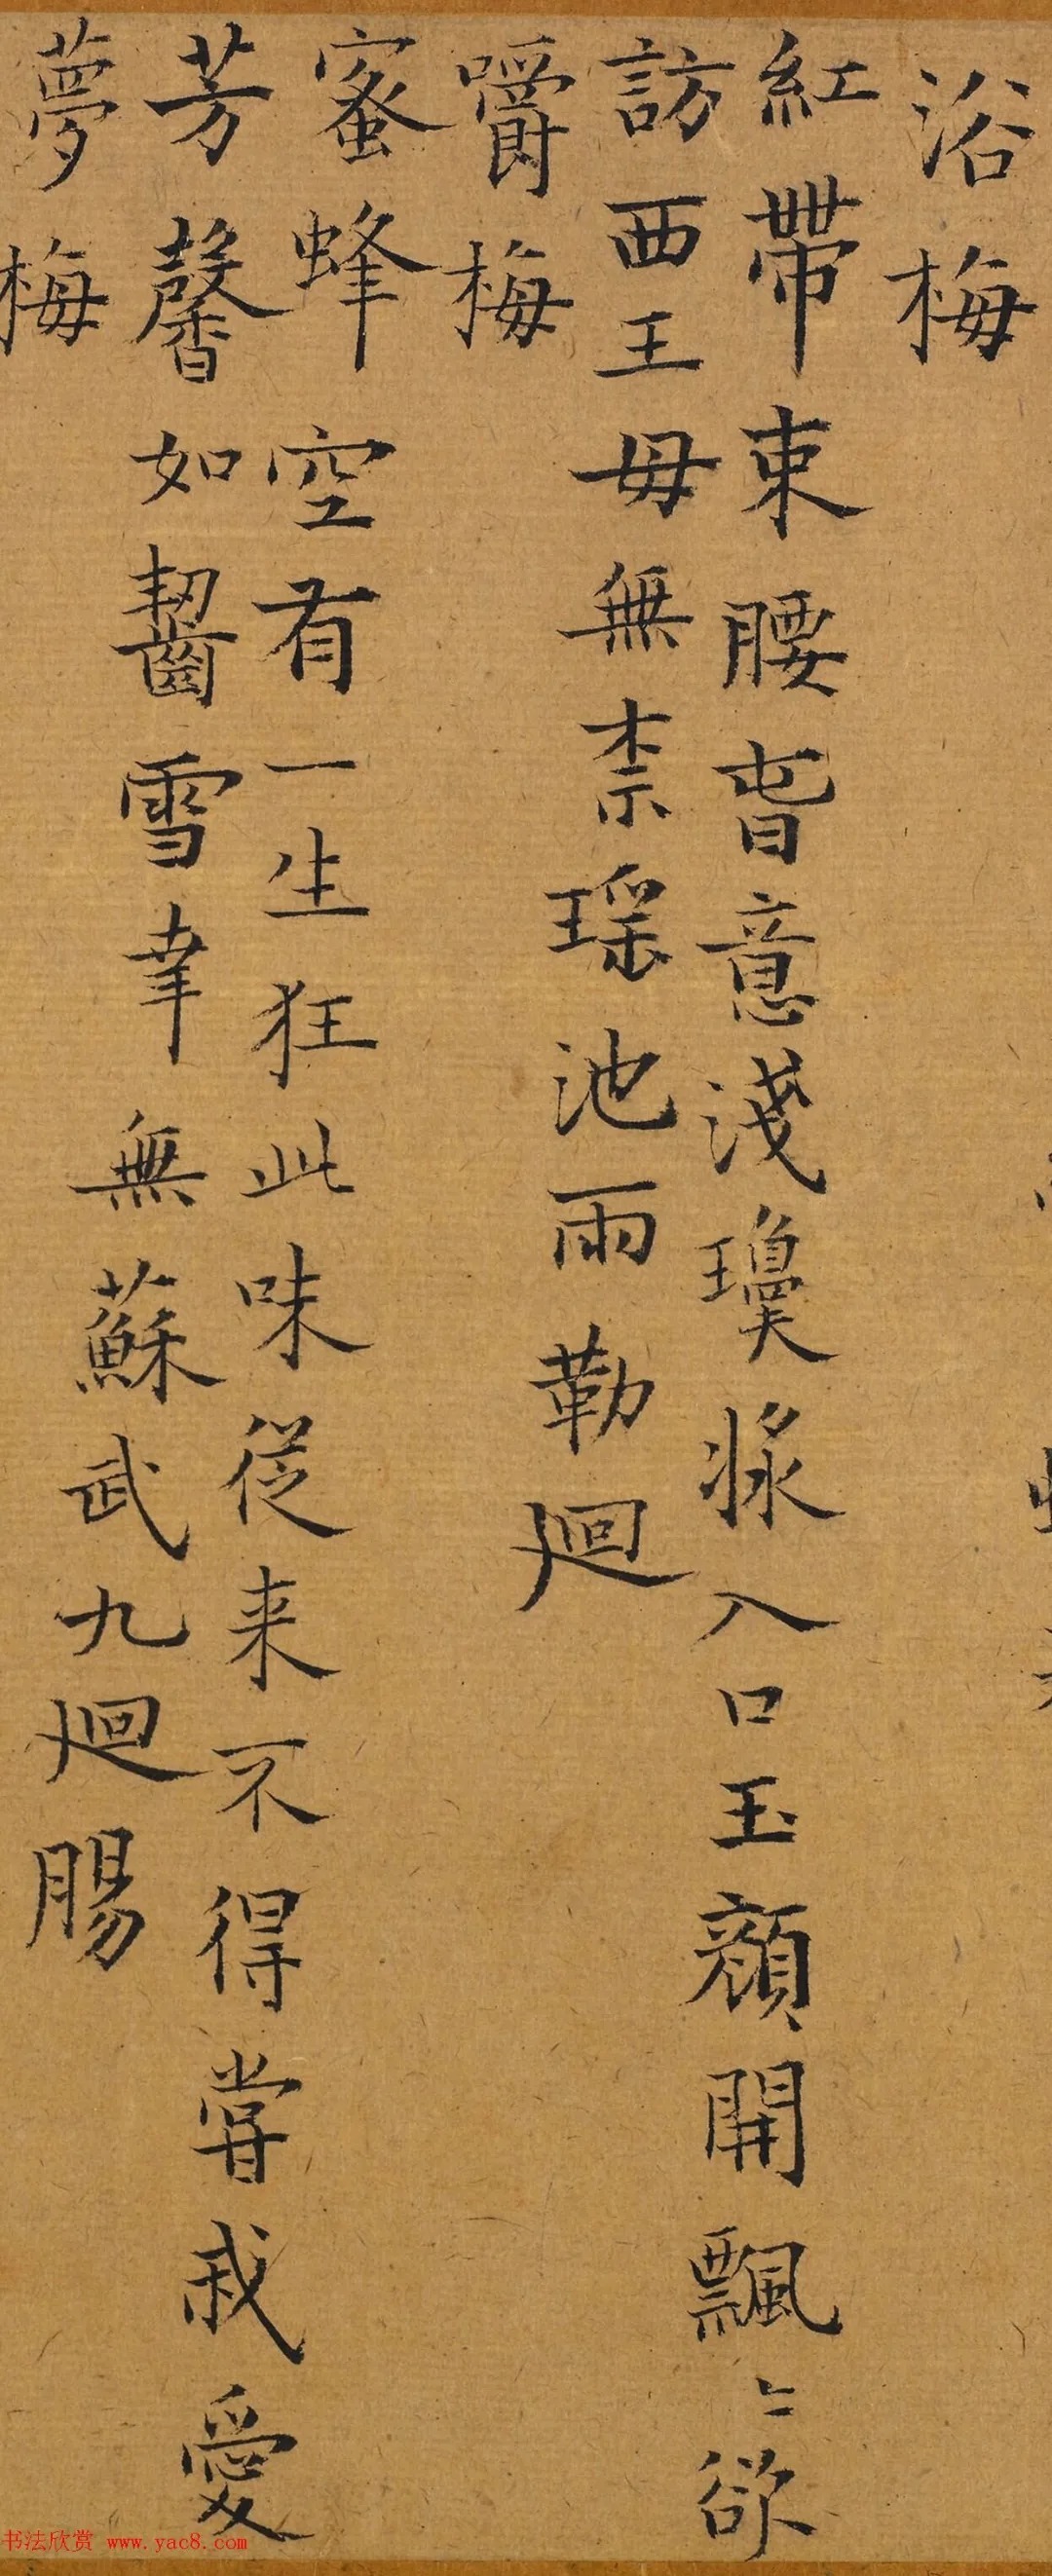 浴梅
紅帶束腰香意淺瓊漿入口玉顏開飄〻欲
訪西王母無柰瑶池雨勒廻
嚼梅
蜜蜂空有一生狂此味從来不得嘗我愛
芳馨如齧雪幸無蘇武九廻腸
夢梅
书法欣赏 www.yac8.com